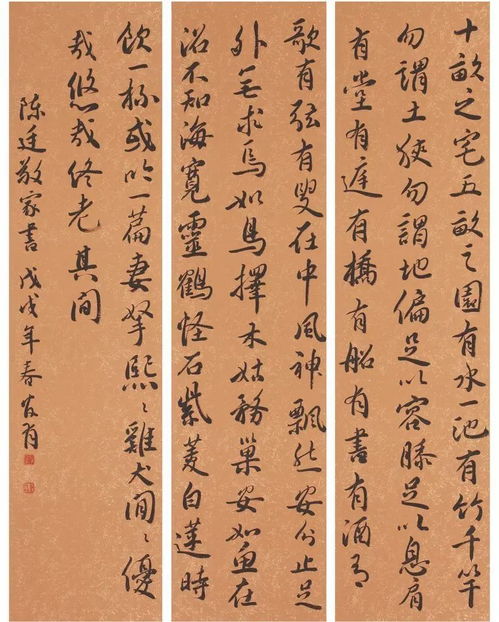 十畝之宅五畝之園有水一池有竹千竿
勿謂土狹勿謂地偏足以容膝足以息肩
有堂有庭有橋有船有書有酒有
歌有弦有叟在中風神飄然安分止足
外無求焉如鳥擇木姑務巢安如魚在
沼不知海寬靈鶴怪石紫菱白蓮時
飲一杯或吟一篇妻孥熙々雞犬閒々優
哉悠哉終老其間
陳廷敬家書戊戌年春